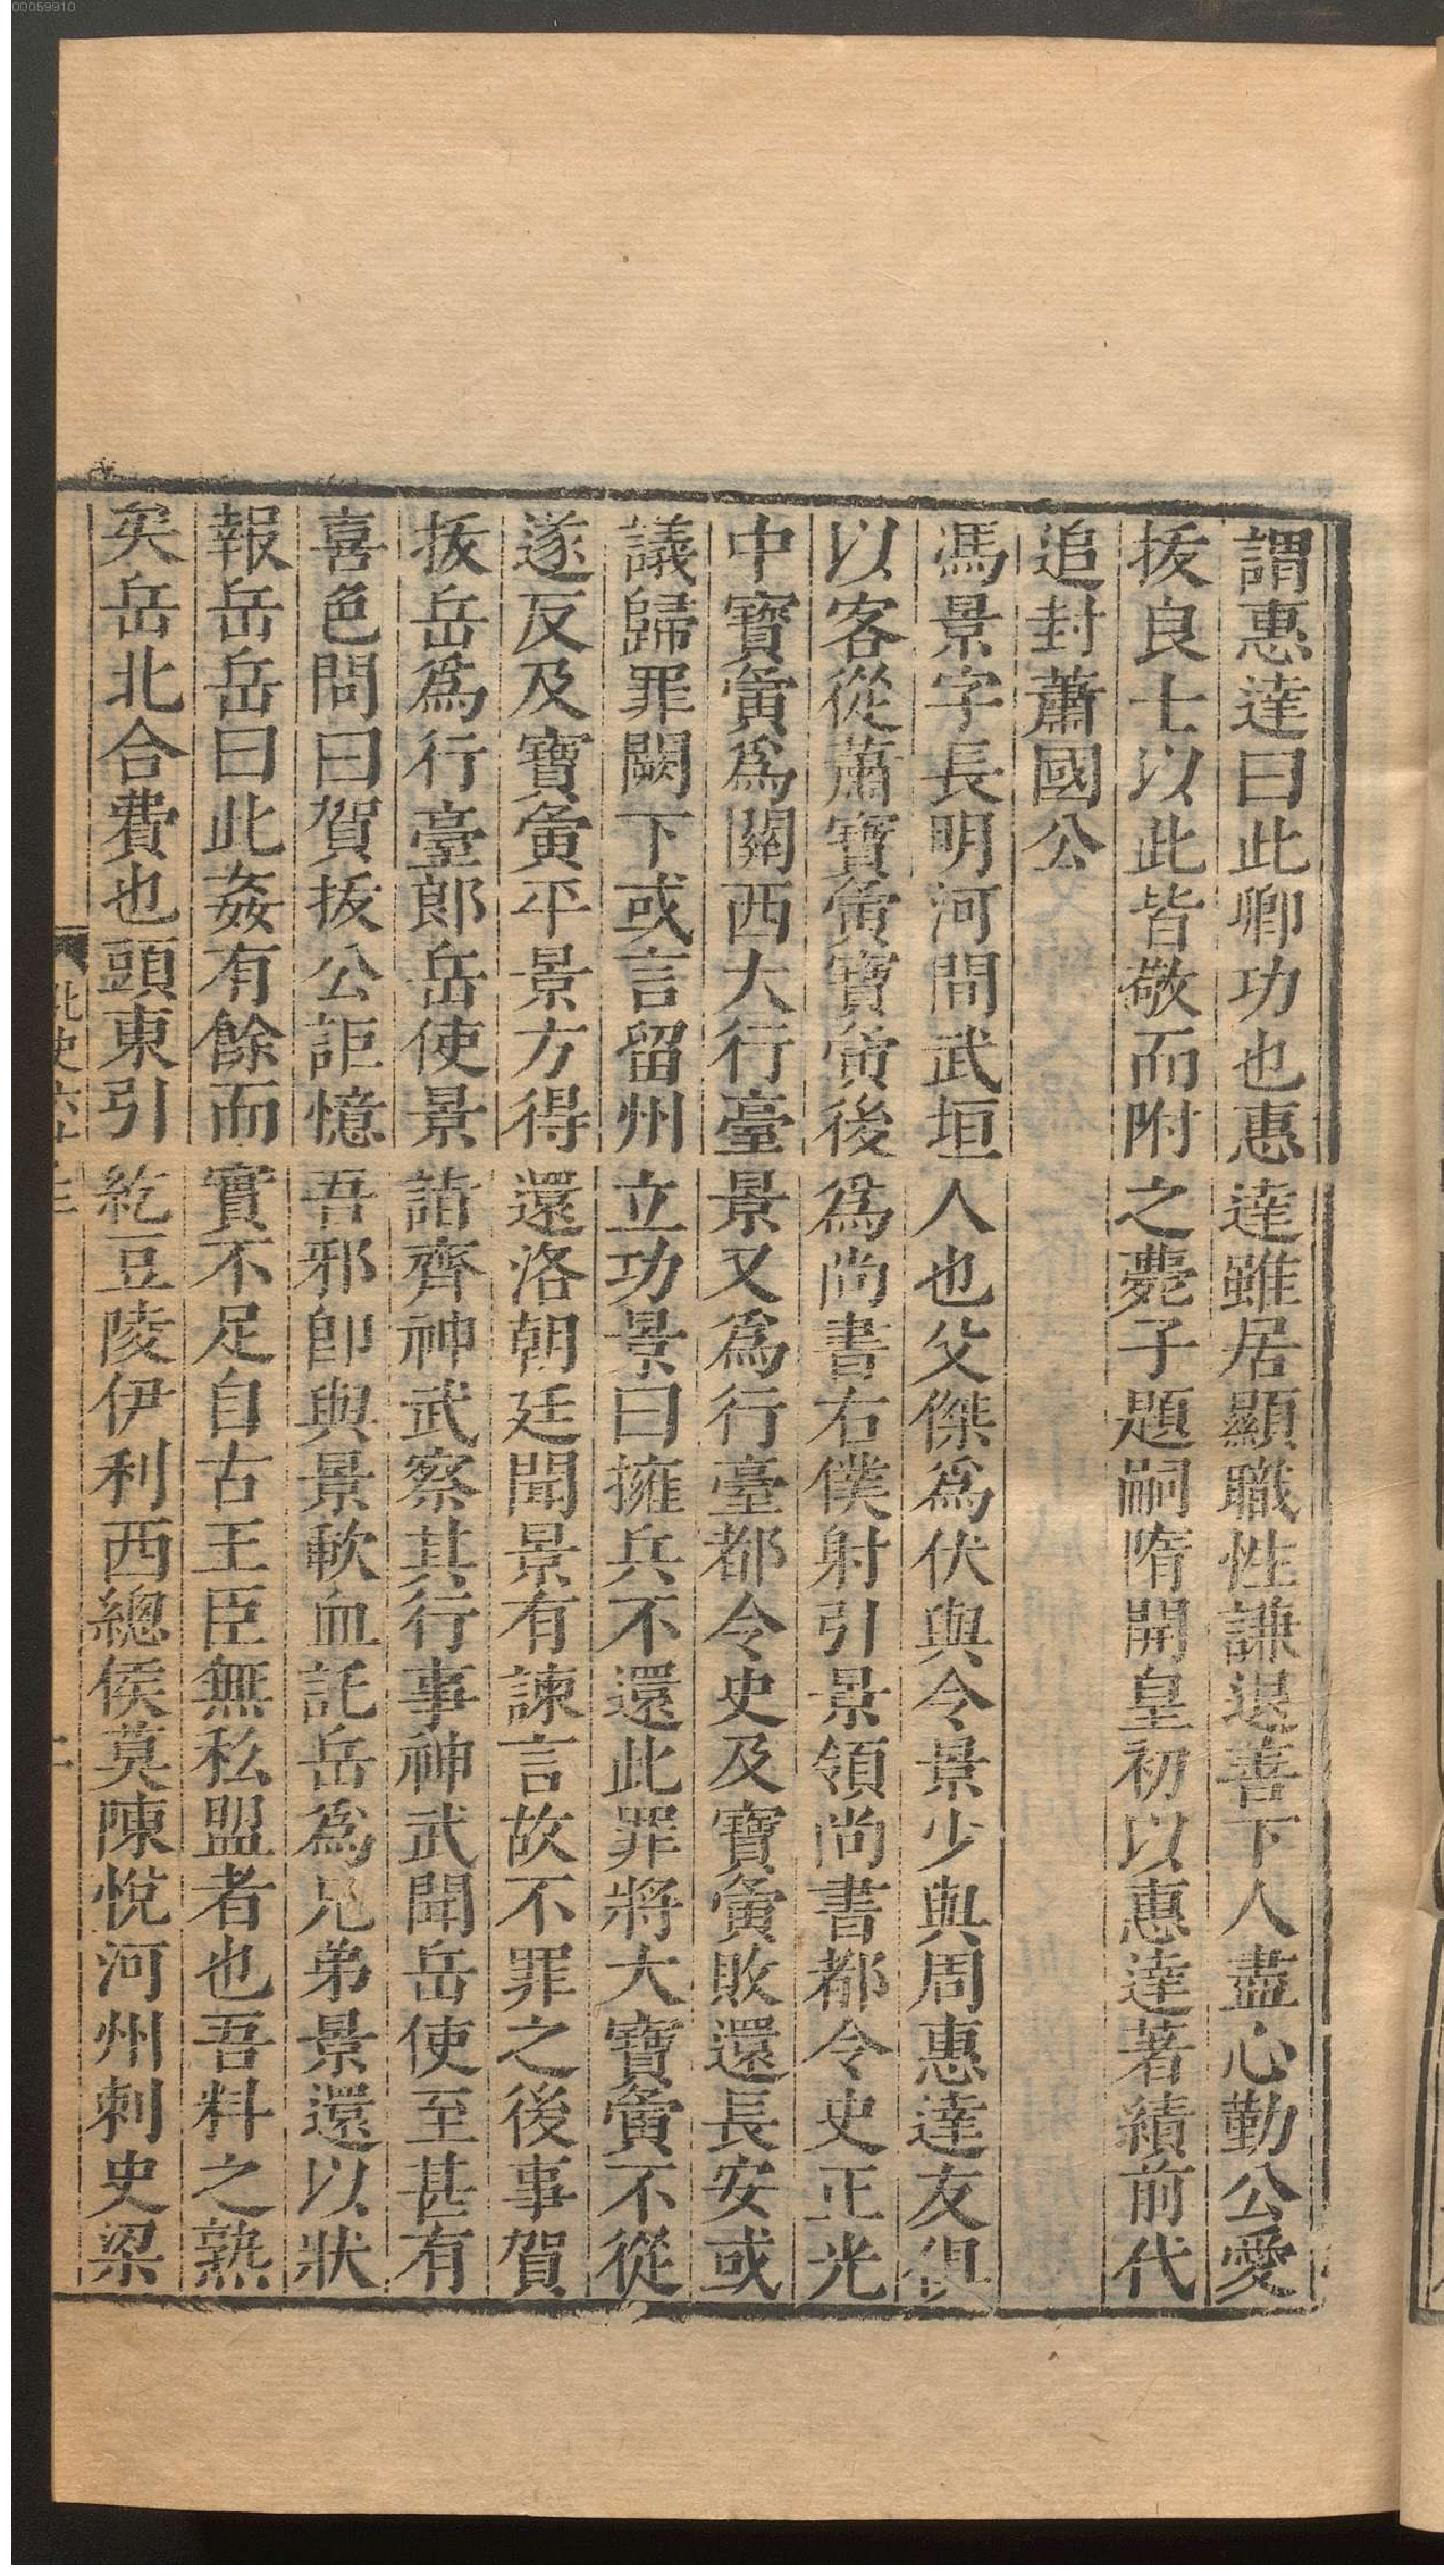 00059910
謂惠達曰此卿功也惠達雖居顯職性謙退善下人盡心勤公愛
拔良士以此皆敬而附之薨子題嗣隋開皇初以惠達著績前代
追封蕭國公
馮景字長明河間武垣人也父傑爲伏與令景少與周惠達友俱
以客從蕭寶夤寶夤後爲尚書右僕射引景領尚書都令史正光
中寶夤爲關西大行臺景又爲行臺都令史及寶夤敗還長安或
議歸罪闕下或言留州立功景曰擁兵不還此罪將大寶夤不從
遂反及寶夤平景方得還洛朝廷聞景有諫言故不罪之後事賀
拔岳爲行臺郎岳使景詣齊神武察其行事神武聞岳使至甚有
喜色問曰賀拔公詎憶吾邪卽與景歃血託岳爲兄弟景還以狀
報岳岳曰此姦有餘而實不足自古王臣無私盟者也吾料之熟
矣岳北合費也頭東引紇豆陵伊利西總侯莫陳悅河州刺史梁